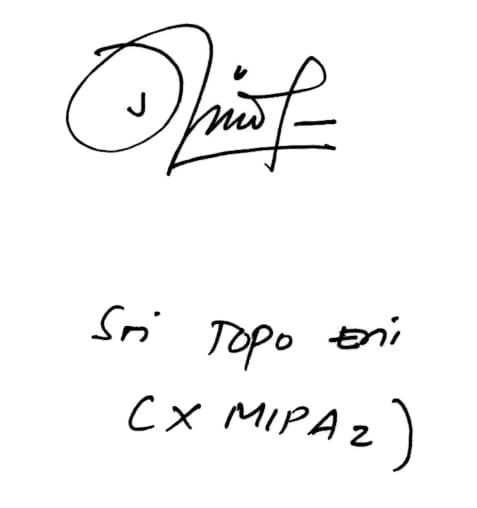 Sri Topo Eni
(X MIPA 2)